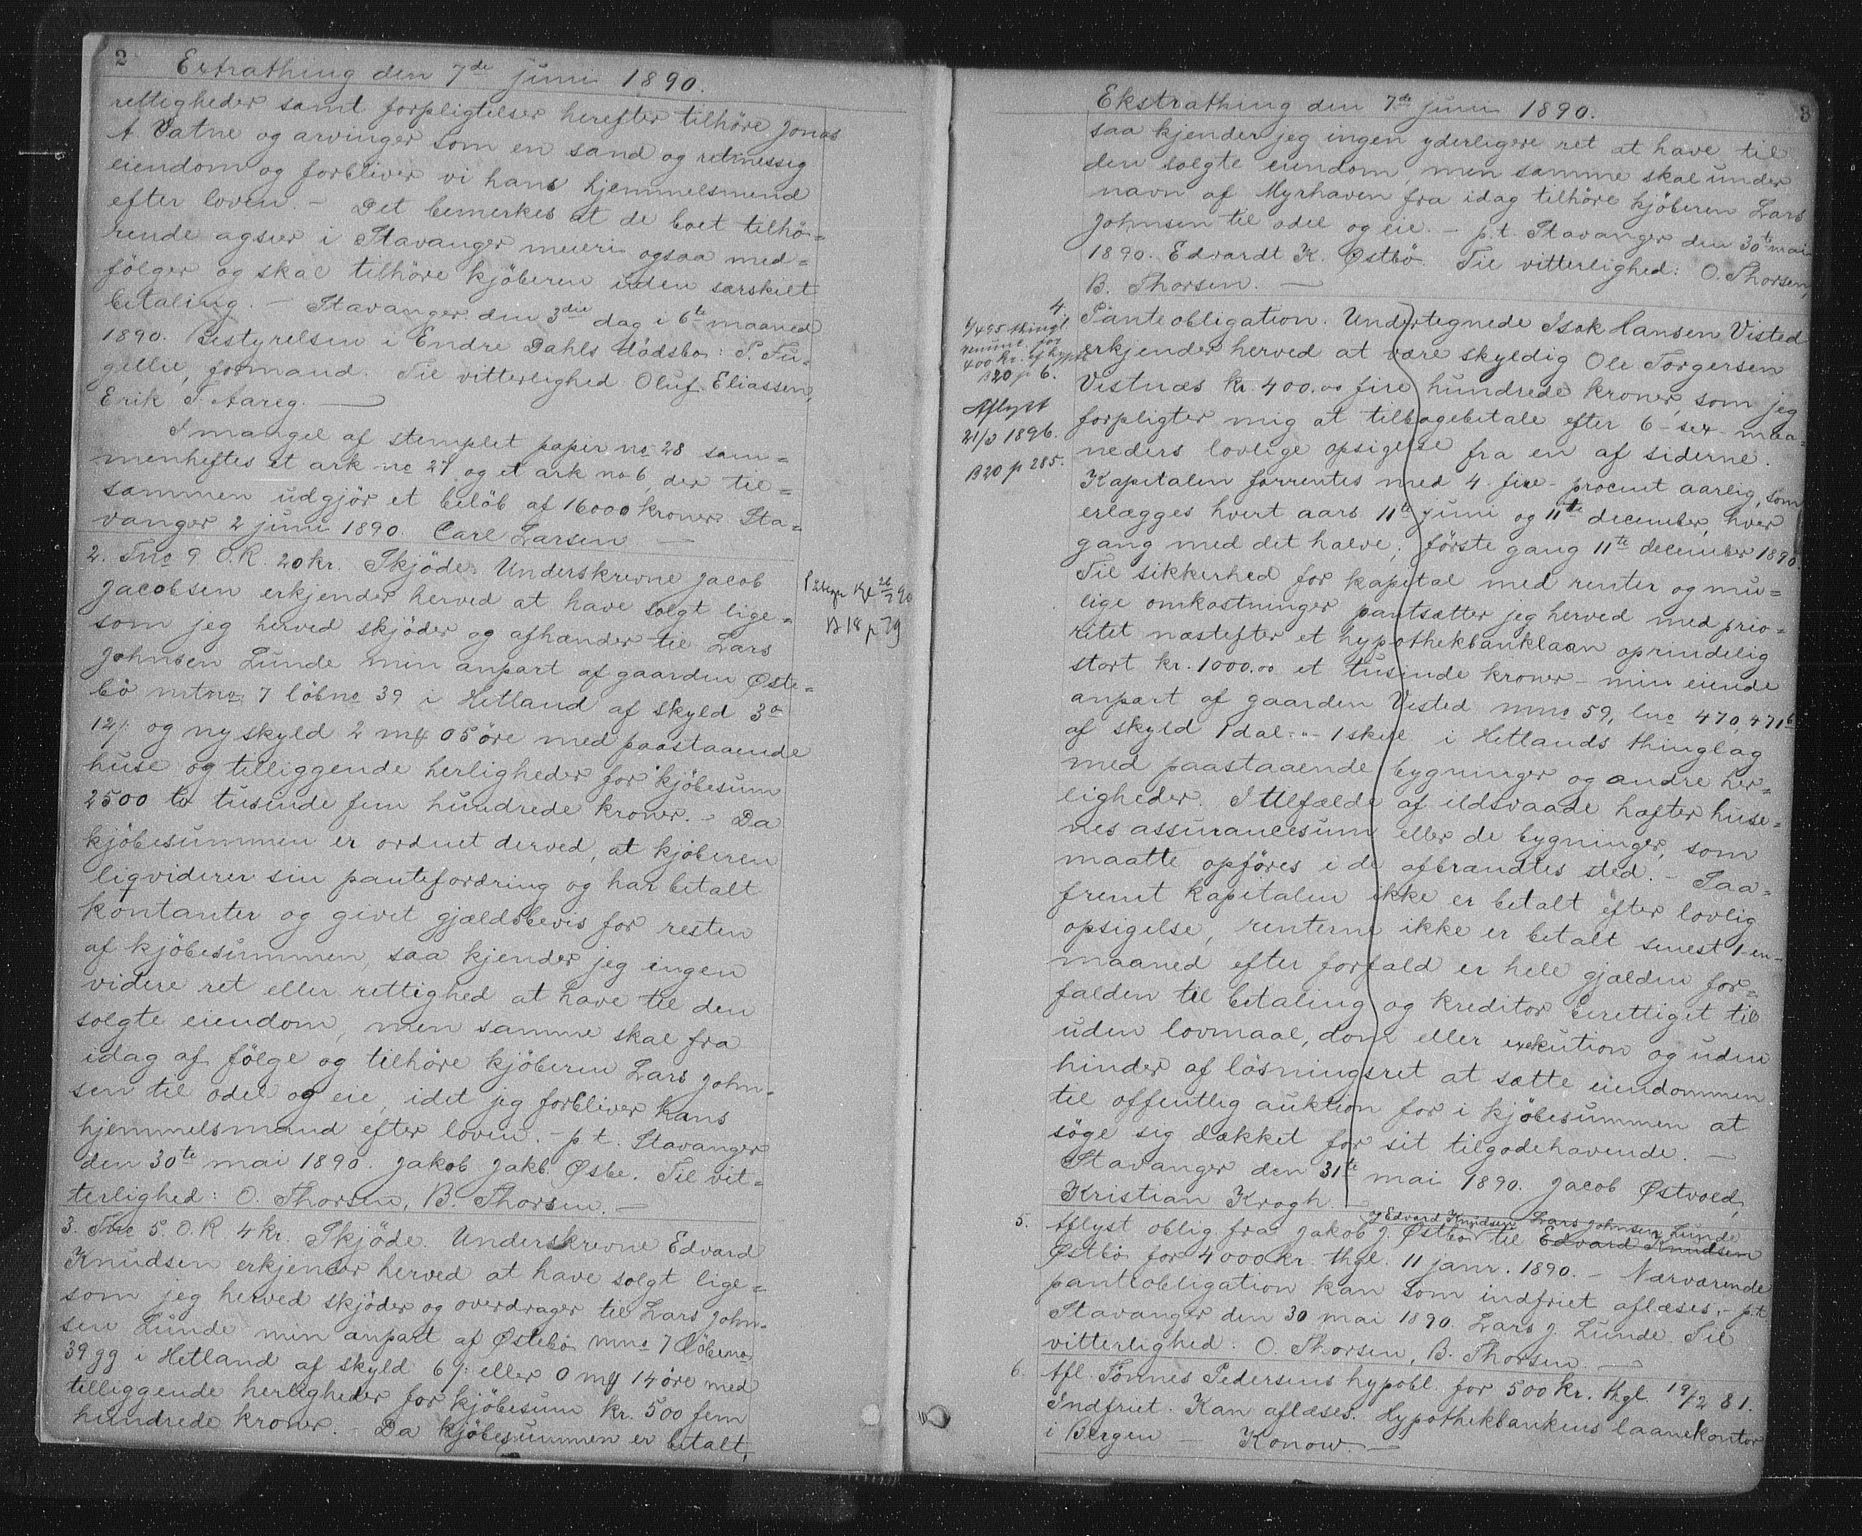 2
Extrathing den 7de juni 1890.
rettigheder samt forpligtelser herefter tilhöre Jonas
A. Vatne og arvinger som en sand og retmessig
eiendom og forbliver vi hans hjemmelsmend
efter loven. - Det bemerkes at de boet tilhö-
rende agsier i Stavanger meieri ogsaa med-
fölger og skal tilhöre kjöberen uden særskilt
betaling. - Stavanger den 3die dag i 6te maaned
1890. Bestyrelsen i Endre Dahls dödsbo:
formand. Til vitterlighed Oluf Eliassen,
Erik T. Aareg. —
I mangel af stemplet papir no 28 sam-
menheftes et ark no 27 og et ark no 6, der til-
sammen udgjör et belöb af 16000 kroner Sta-
vanger 2 juni 1890. Carl Larsen —
2. Tno 9 O.R. 20 kr. Skjöde. Underskrevne Jacob
Jacobsen erkjender herved at have solgt lige-
som jeg herved skjöder og afhænder til Lars
Johnsen Lunde min anpart af gaarden Öste-
bö mtno 7 löbno 39 i Hetland af skyld 3
12/ og ny skyld 2 mk 05 öre med paastaaende
huse og tilliggende herligheder for kjöbesum
2500 to tusinde fem hundrede kroner. - Da
kjöbesummen er ordnet derved, at kjöberen
liqviderer sin pantefordring og har betalt
kontanter og givet gjældsbevis for resten
af kjöbesummen, saa kjender jeg ingen
videre ret eller rettighed at have til den
solgte eiendom, men samme skal fra
idag af fölge og tilhöre kjöberen Lars John-
sen til odel og eie, idet jeg forbliver hans
hjemmelsmand efter loven. - p t. Stavanger
den 30te mai 1890. Jakob Jakb Østbe. Til vit-
terlighed: O. Thorsen, B. Thorsen. —
B 18 p 79
3. Tno 5. O.R 4 kr. Skjöde. Underskrevne Edvard
Knudsen erkjender herved at have solgt lige-
som jeg herved skjöder og overdrager til Lars John-
sen Lunde min anpart af Østebö mno 7 löbeno
39 gg i Hetland af skyld 6 /: eller 0 mk 14 öre med
tilliggende herligheder for kjöbesum kr. 500 fem
hundrede kroner. - Da kjöbesummen er betalt,
3
Ekstrathing den 7de juni 1890.
saa kjender jeg ingen yderligere ret at have til
den solgte eiendom, men samme skal under
navn af Myrhaven fra idag tilhöre kjöberen Lars
Johnsen til odel og eie. - p.t. Stavanger den 30te mai
1890. Edvardt K. Østbö. Til vitterlighed: O. Thorsen,
B. Thorsen. —
4. Panteobligation. Undertegnede Isak Hansen Visted
erkjender herved at være skyldig Ole Torgersen
Vistnæs kr. 400.00 fire hundrede kroner, som jeg
forpligter mig at tilbagebetale efter 6 - sex - maa-
neders lovlige opsigelse fra en af siderne.
Kapitalen forrentes med 4 - fire - procent aarlig, som
erlægges hvert aars 11te juni og 11te december, hver
gang med det halve, förste gang 11te december 1890.
Til sikkerhed for kapital med renter og mu-
lige omkostninger pantsætter jeg herved med prio-
ritet næstefter et hypothekbanklaan oprindelig
stort kr. 1000.00 et tusinde kroner - min eiende
anpart af gaarden Visted mno 59, lno 470, 471
af skyld 1 dal. - 1 skil i Hetlands thinglag
med paastaaende bygninger og andre her-
ligheder. I tilfælde af ildsvaade hæfter huse-
nes assurancesum eller de bygninger, som
maatte opföres i de afbrændtes sted. - Saa-
fremt kapitalen ikke er betalt efter lovlig
opsigelse, renterne ikke er betalt senest 1 - en -
maaned efter forfald er hele gjælden for-
falden til betaling og kreditor berettiget til
uden lovmaal, dom eller exekution og uden
hinder af lösningsret at sætte eiendommen
til offentlig auktion for i kjöbesummen at
söge sig dækket for sit tilgodehavende. —
Stavanger den 31te mai 1890. Jacob Østvold,
Kristian Krogh.
400 kr. ef hypt
B20 p 6.
Aflyst
1896.
B20 p 285.
J Edvard Knudsen Lars Johnsen Lunde
5. Aflyst oblig fra Jakob J. Østbö til Edvard Knudsen
Østbö for 4000 kr. thgl. 11 janr. 1890. - Nærværende
panteobligation kan som indfriet aflæses. - p.t.
Stavanger den 30 mai 1890. Lars J. Lunde. Til
vitterlighed: O. Thorsen, B. Thorsen. —
6. Afl. Tönnes Pedersens hypobl. for 500 kr. thgl. 19/2 81.
Indfriet. Kan aflæses. Hypothekbankens laanekontor
i Bergen - Konow. —